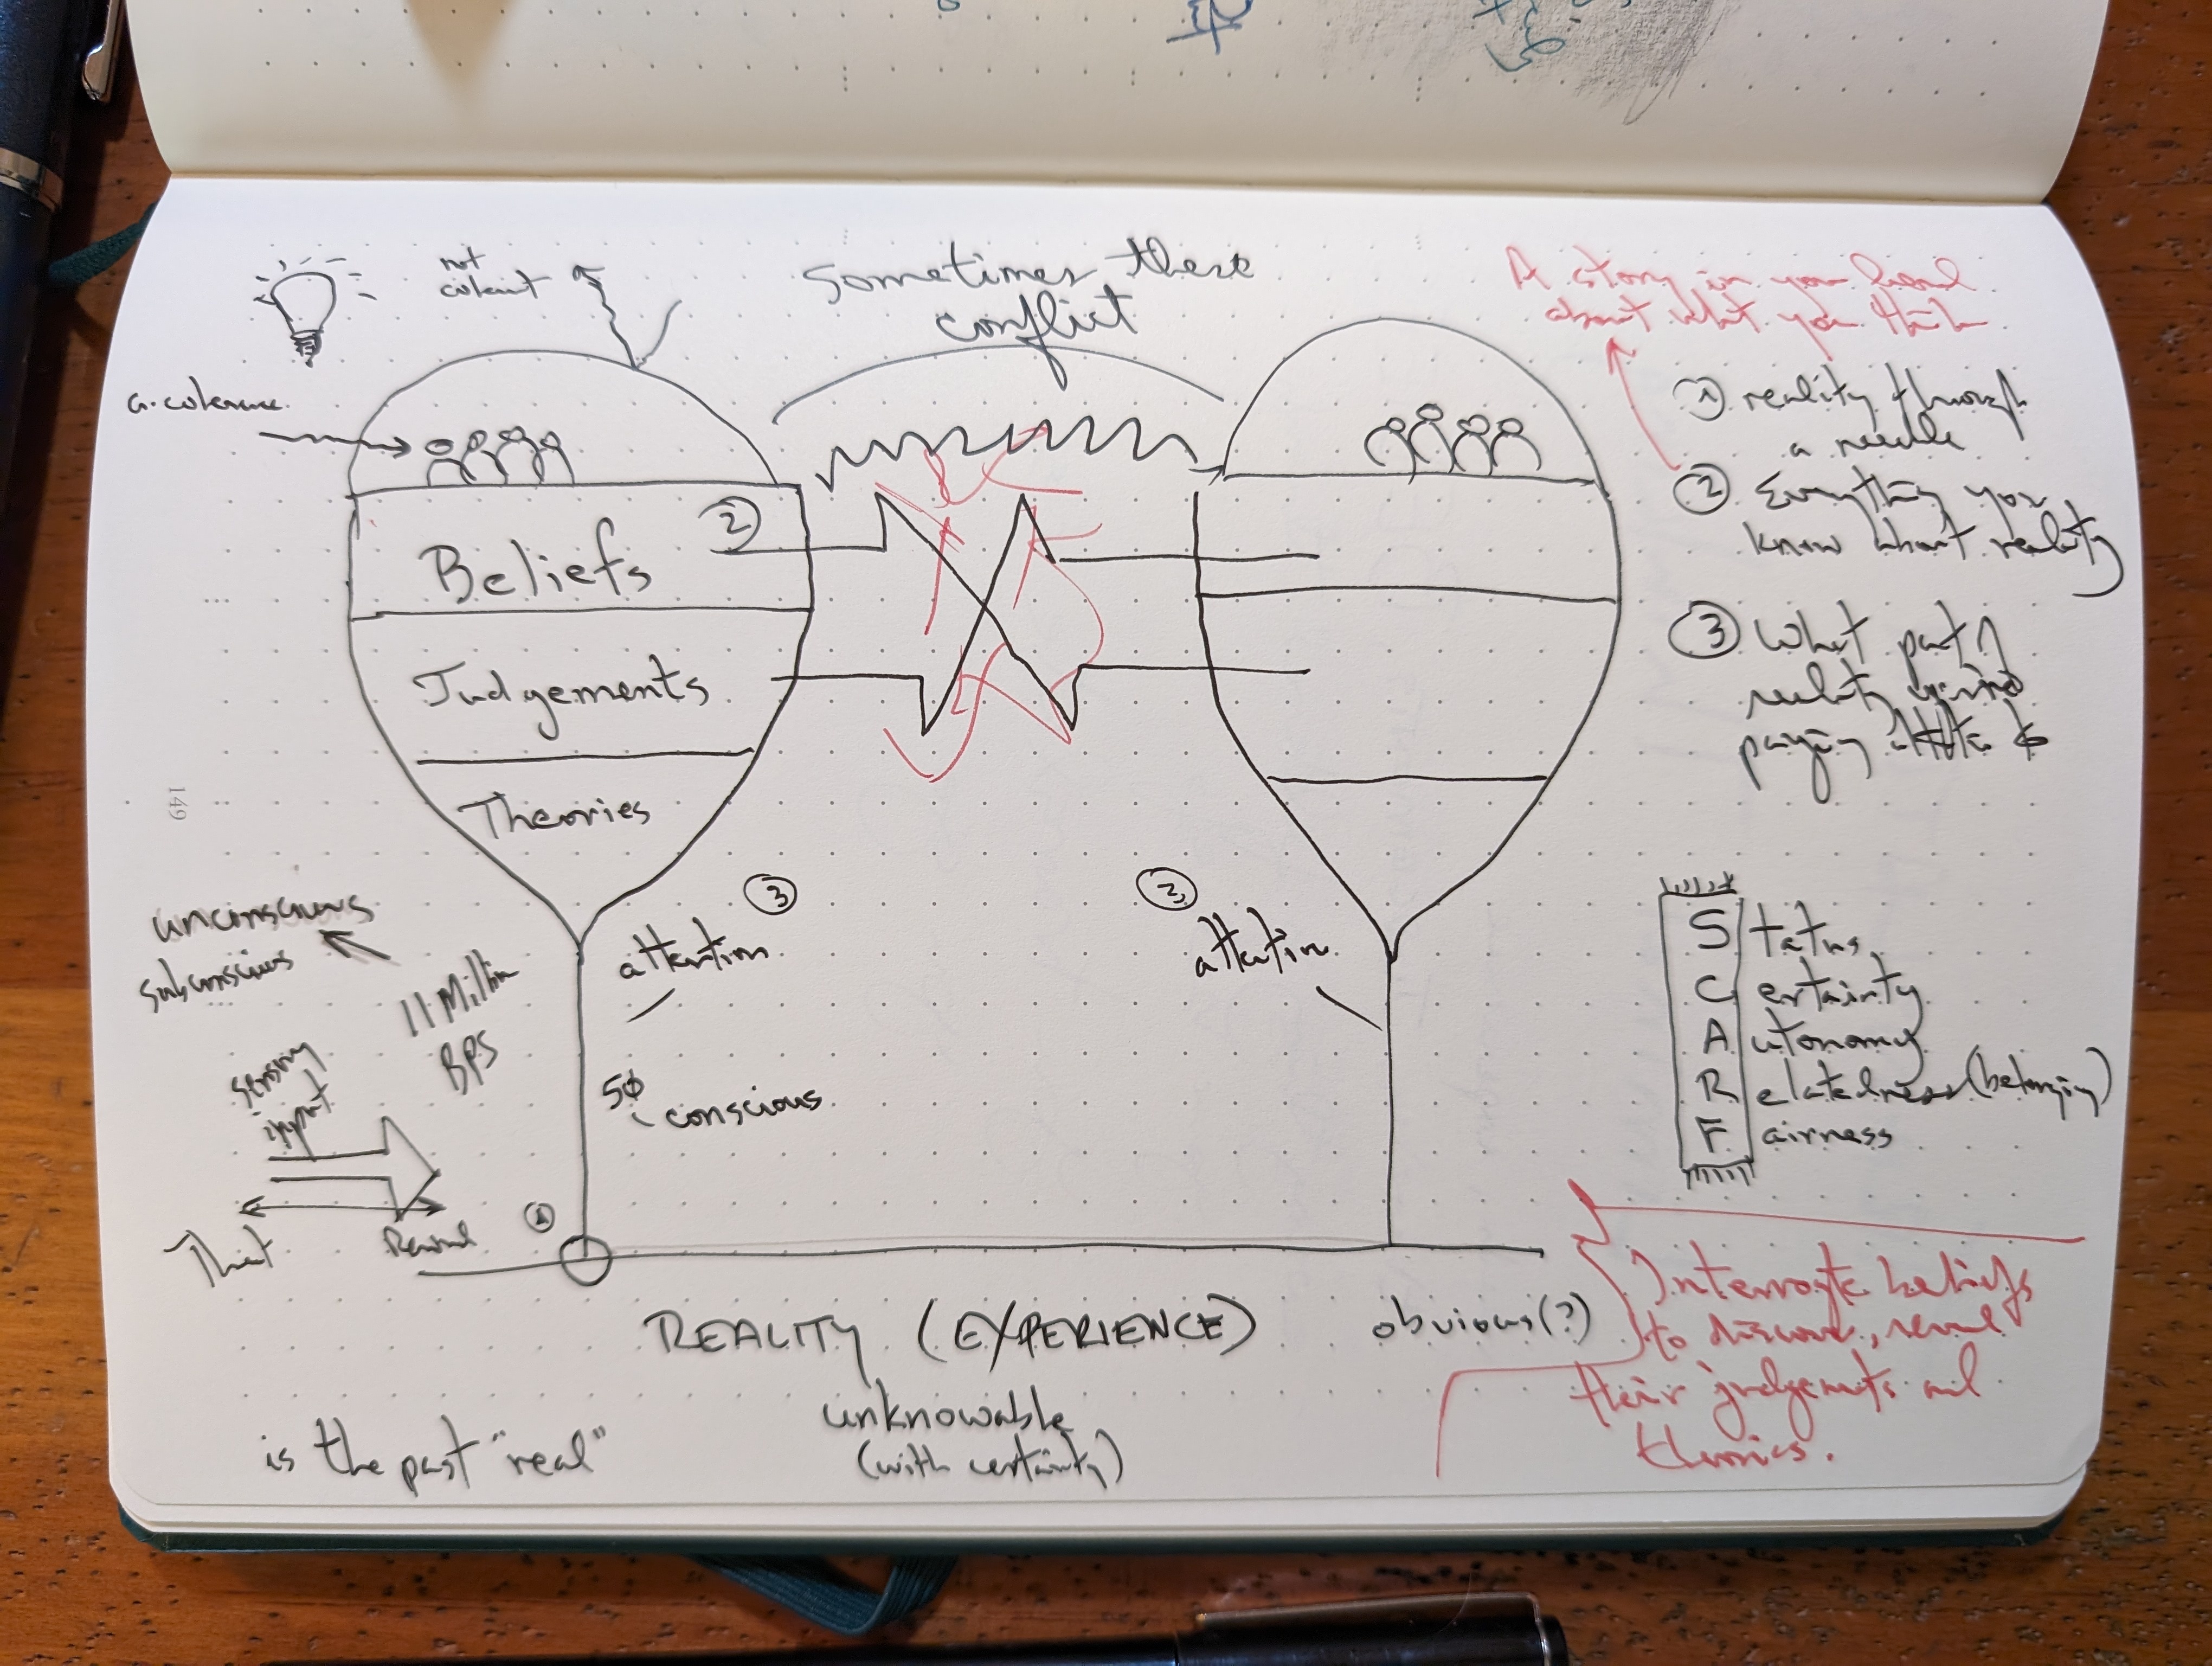 not
Sometimes these
conflict
A story in your head
about what you think
① reality through
a needle
② Everything you
know about reality
③ What part of
reality
paying
②
Beliefs
Judgements
Theories
149
③
attention
③
attention
unconscious
subconscious
11 Million
BPS
sensory
input
50
conscious
Threat
Reward
①
S tatus
C ertainty
A utonomy
R elatedness (belonging)
F airness
REALITY (EXPERIENCE)
obvious(?)
unknowable
(with certainty)
is the past "real"
Interrogate beliefs
to discover, reveal
their judgements and
theories.